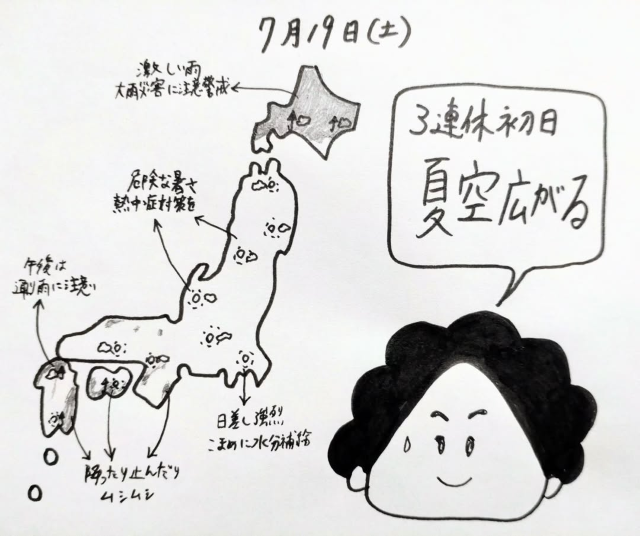 7月19日(土)
激しい雨
大雨災害に注意警戒
3連休初日
夏空広がる
危険な暑さ
熱中症対策を
午後は
通り雨に注意
日差し強烈
こまめに水分補給
降ったり止んだり
ムシムシ